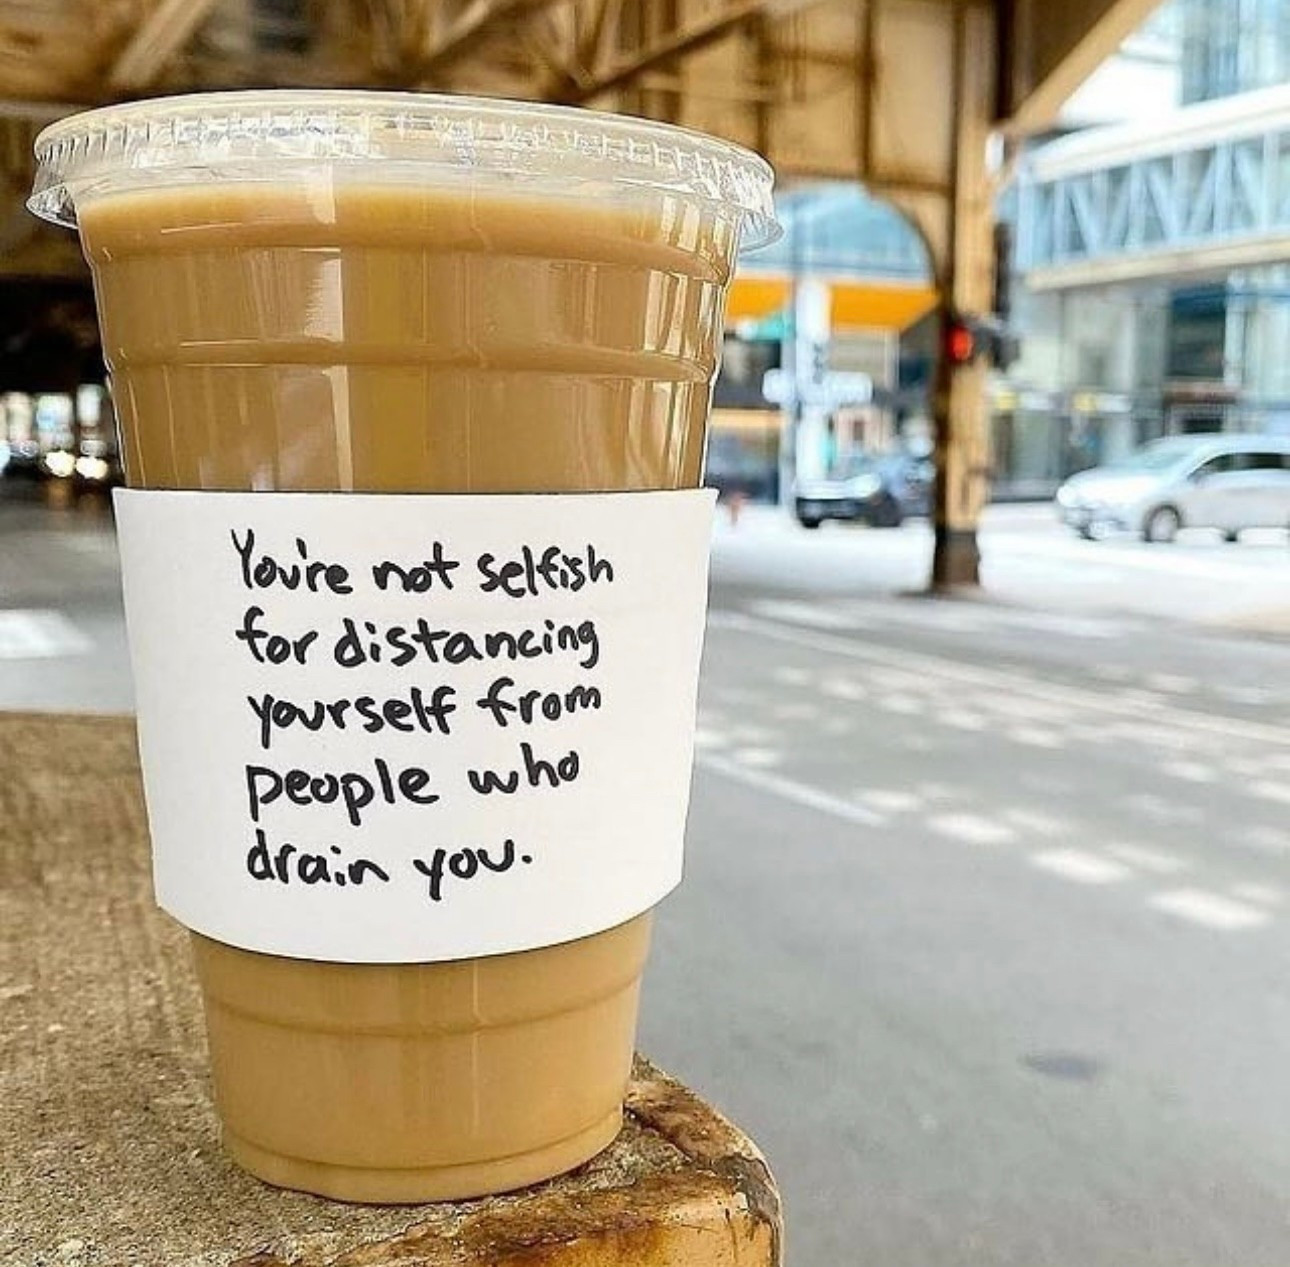 You're not selfish
for distancing
yourself from
people who
drain you.